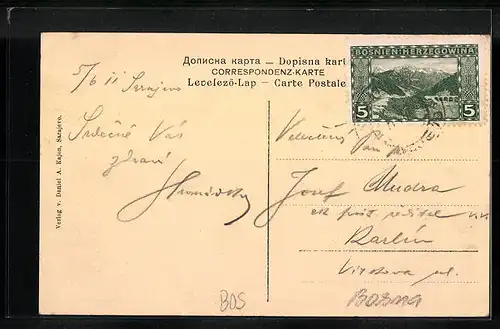 Дописна карта — Dopisna karta
CORRESPONDENZ-KARTE
Levelező-Lap — Carte Postale
BOSNIEN-HERZEGOWINA
5 5
5/6 11 Sarajevo
Srdečně Vás
zdraví
Verlag v. Daniel A. Kajon, Sarajevo.
Velectěný pan
Josef Mudra
Karlín
Vítkova ul.
BOS
BOSNA